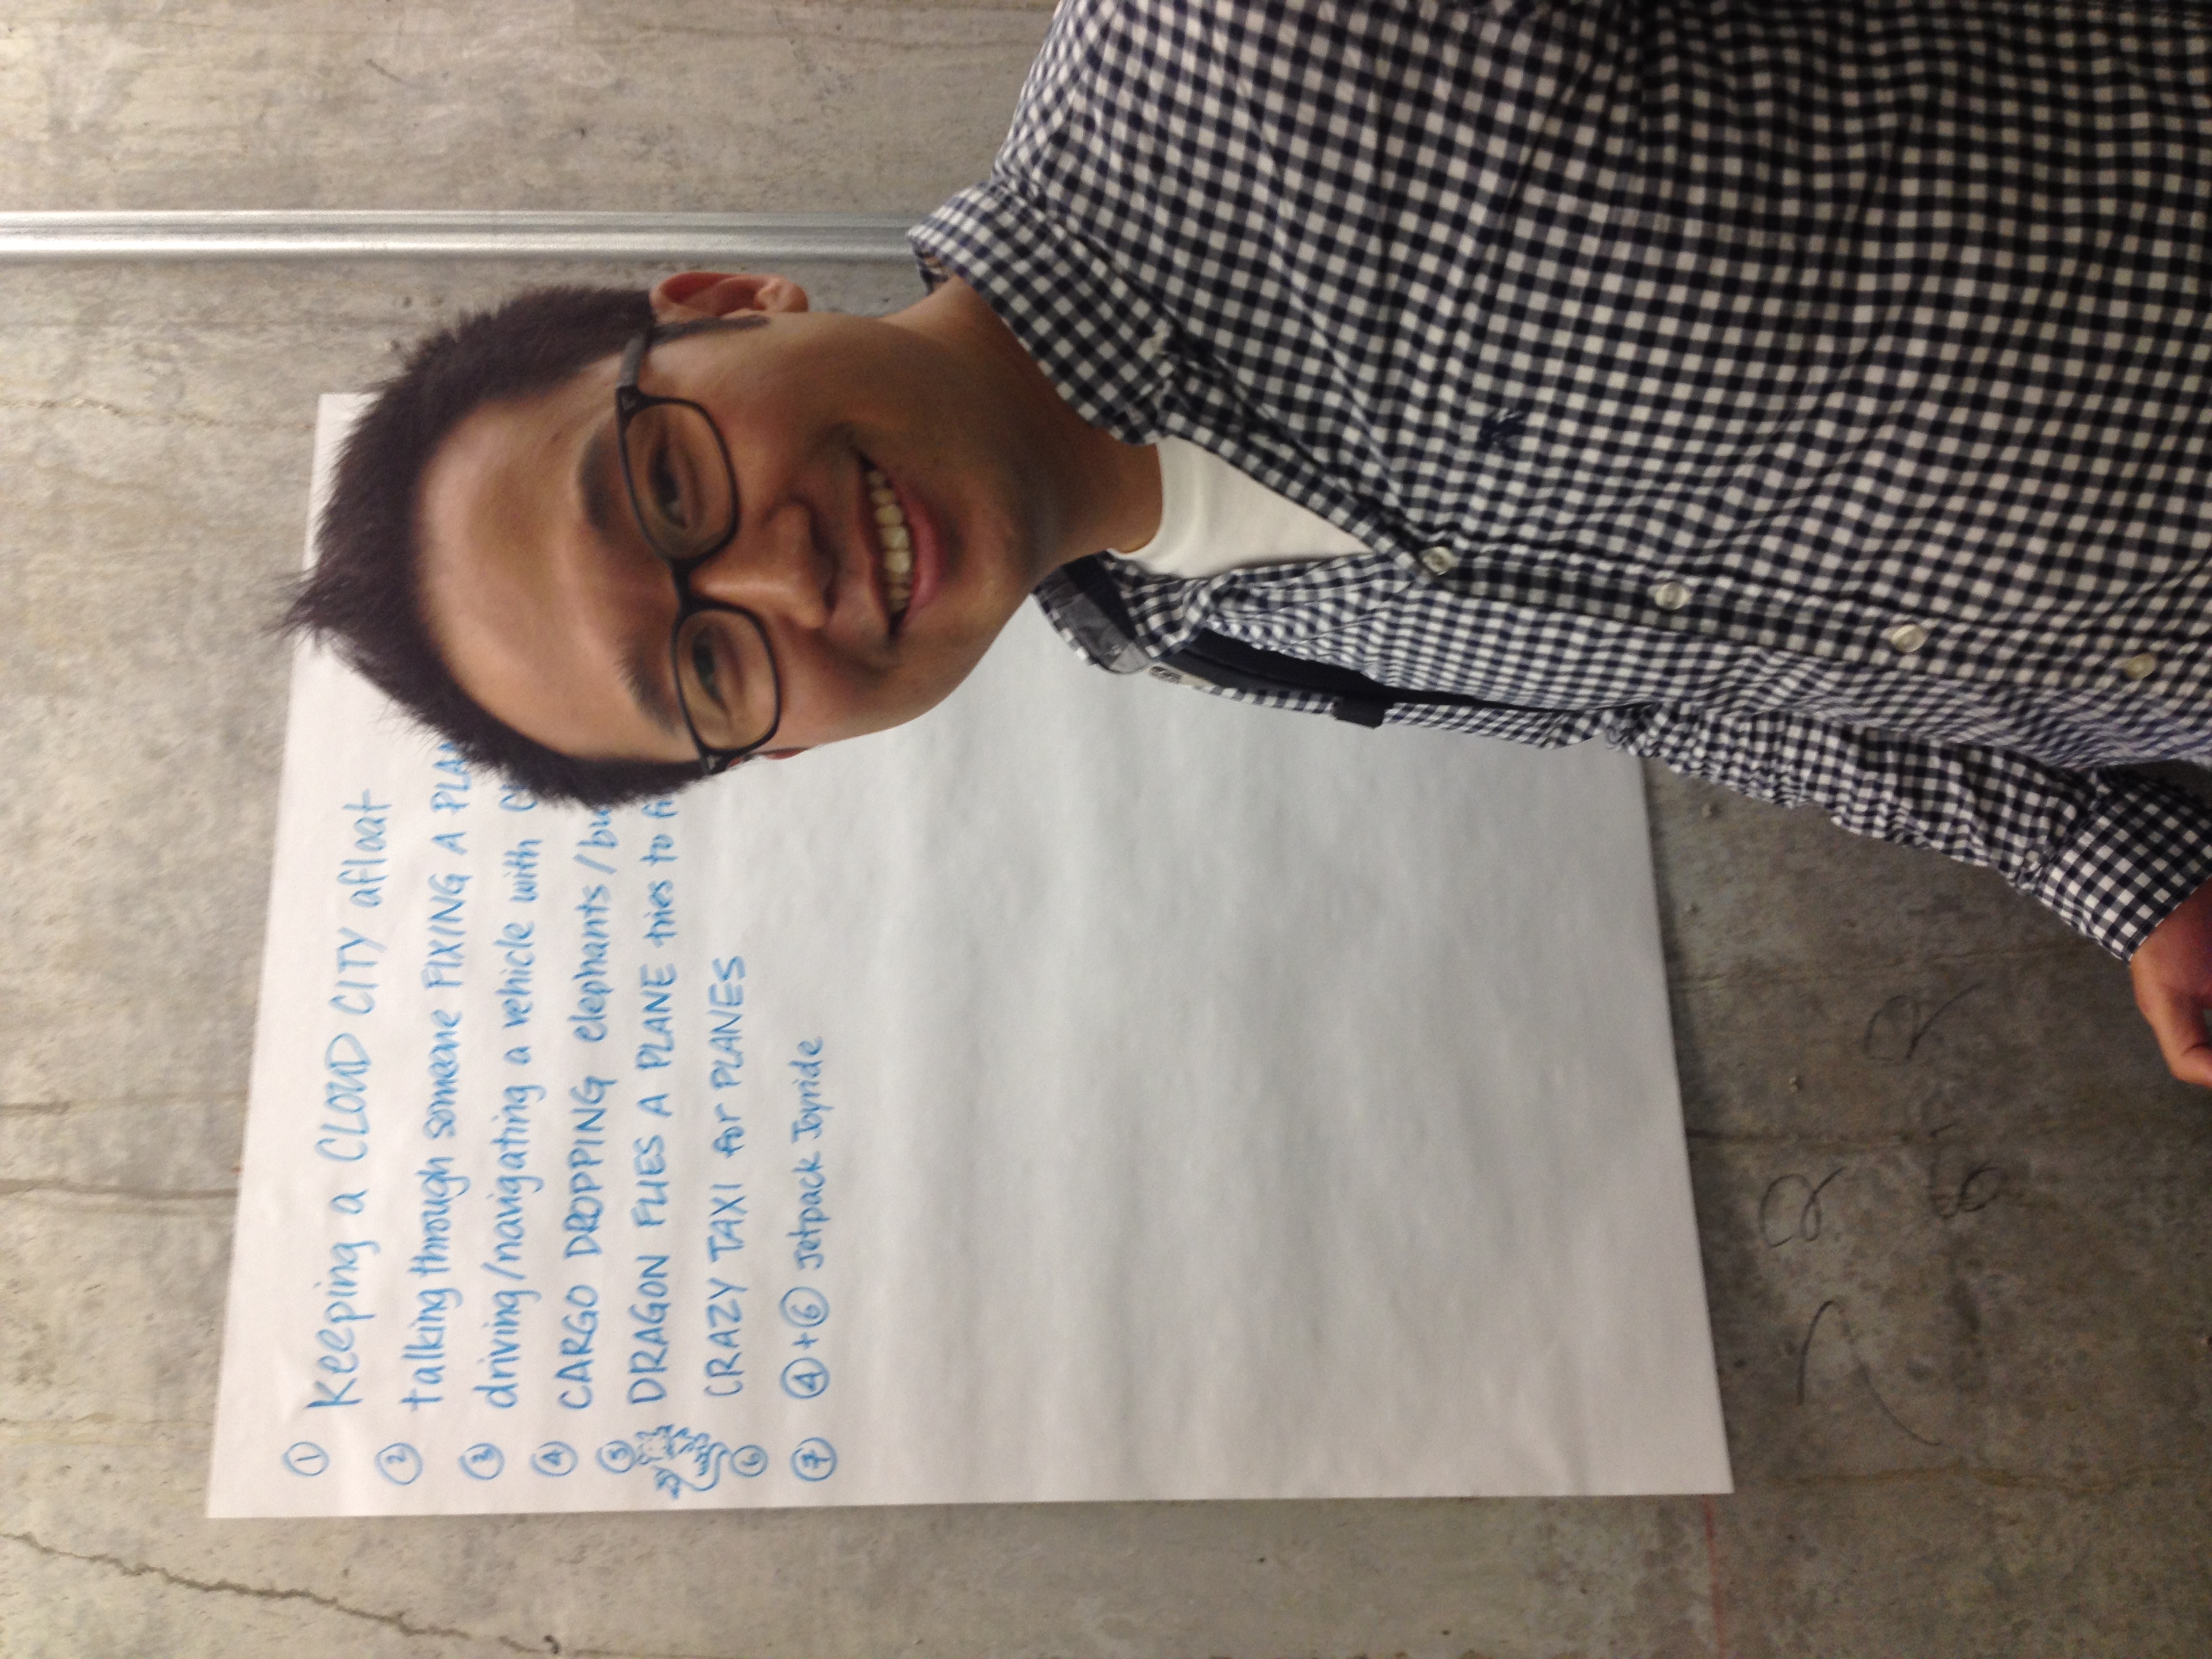 ① keeping a CLOUD CITY afloat
② talking through someone FIXING A PLAN
③ driving/navigating a vehicle with
④ CARGO DROPPING elephants/bu
⑤ DRAGON FLIES A PLANE tries to fi
⑥ CRAZY TAXI for PLANES
⑦ ④+⑥ Jetpack Joyride